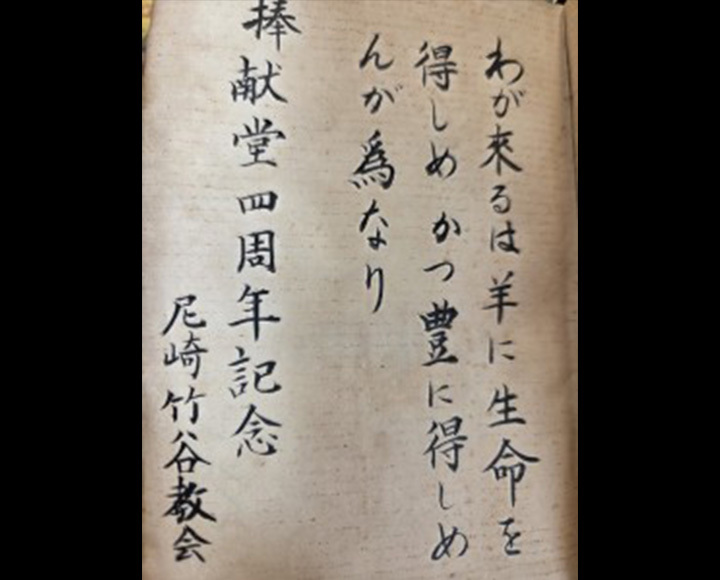 わが来るは羊に生命を
得しめ かつ豊に得しめ
んが爲なり
捧献堂四周年記念
尼崎竹谷教会